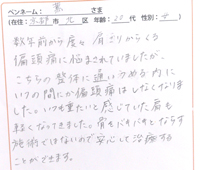 ペンネーム( 寛 )さま
(在住: 京都 市 北 区 年齢: 20 代 性別: 女 )
数年前から度々肩こりからくる
偏頭痛に悩まされていましたが、
こちらの整体に通いつめる内に
いつの間にか偏頭痛はしなくなりま
した。いつも重たいと感じていた肩も
軽くなってきました。骨をバキバキとならす
施術ではないので安心して治療する
ことができます。